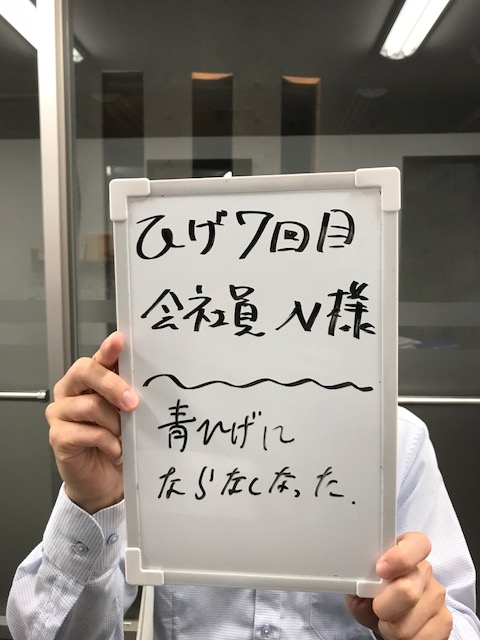 ひげ7回目
会社員 N様
青ひげに
ならなくなった.